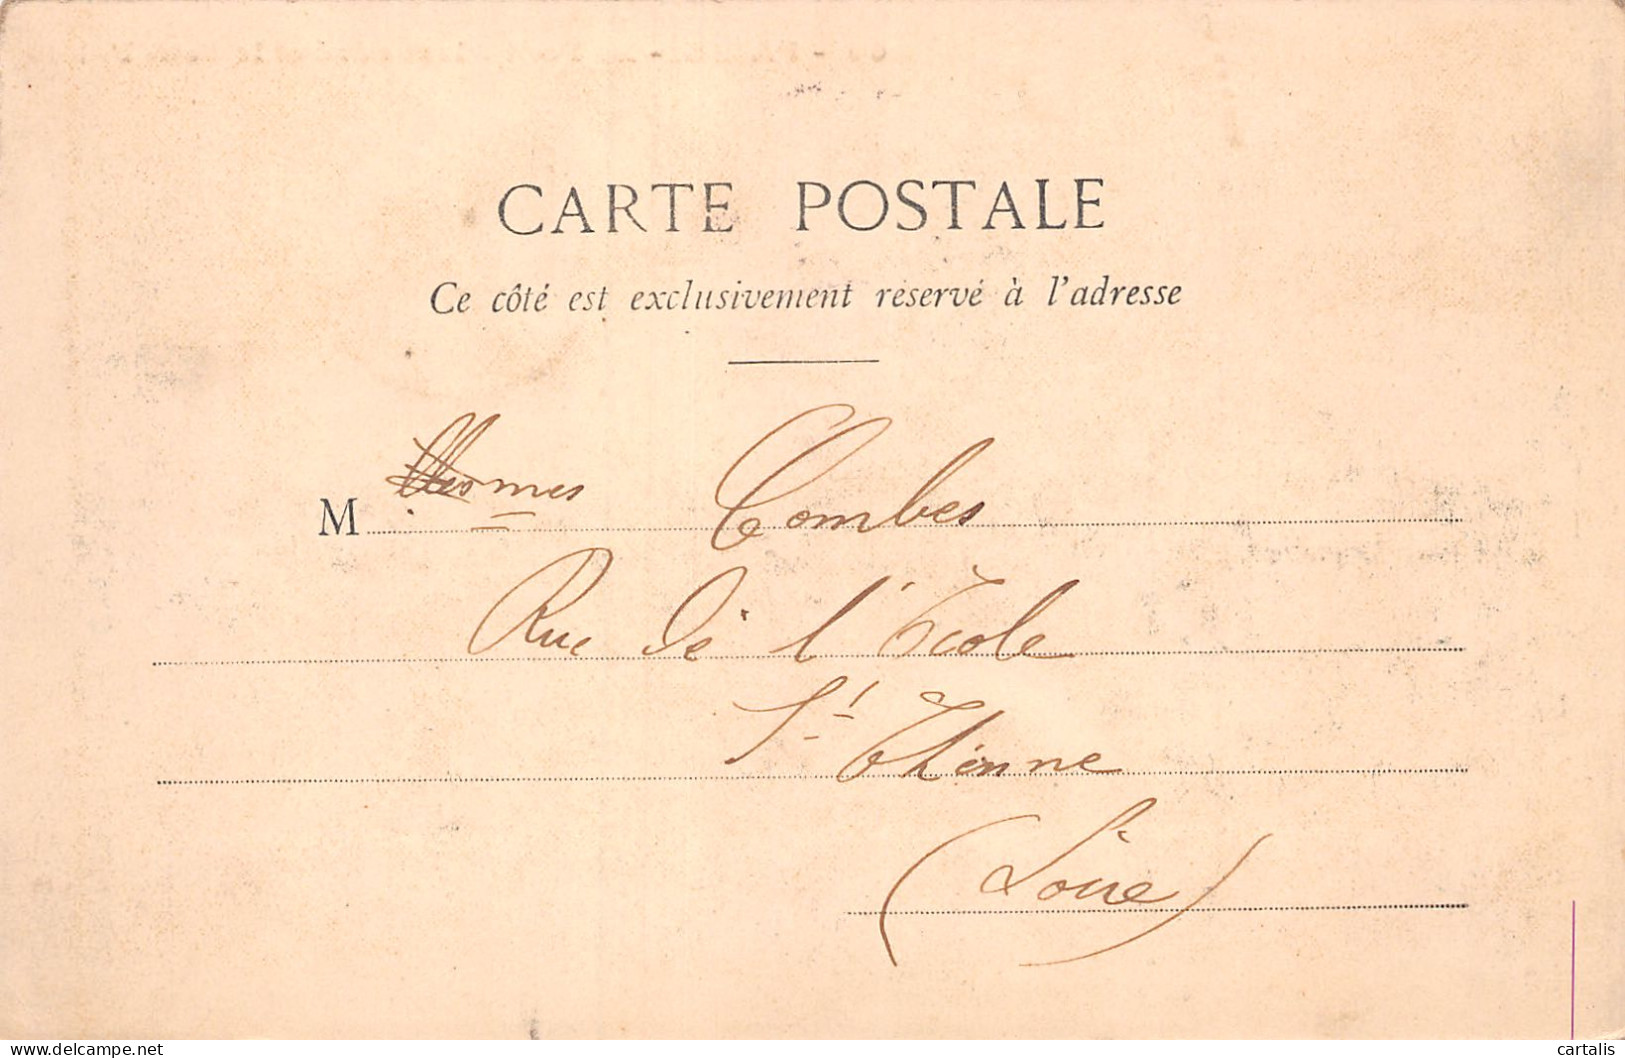 CARTE POSTALE
Ce côté est exclusivement réservé à l'adresse
M mes Combes
Rue de l'Ecole
St Etienne
(Loire)
delcampe.net
cartalis